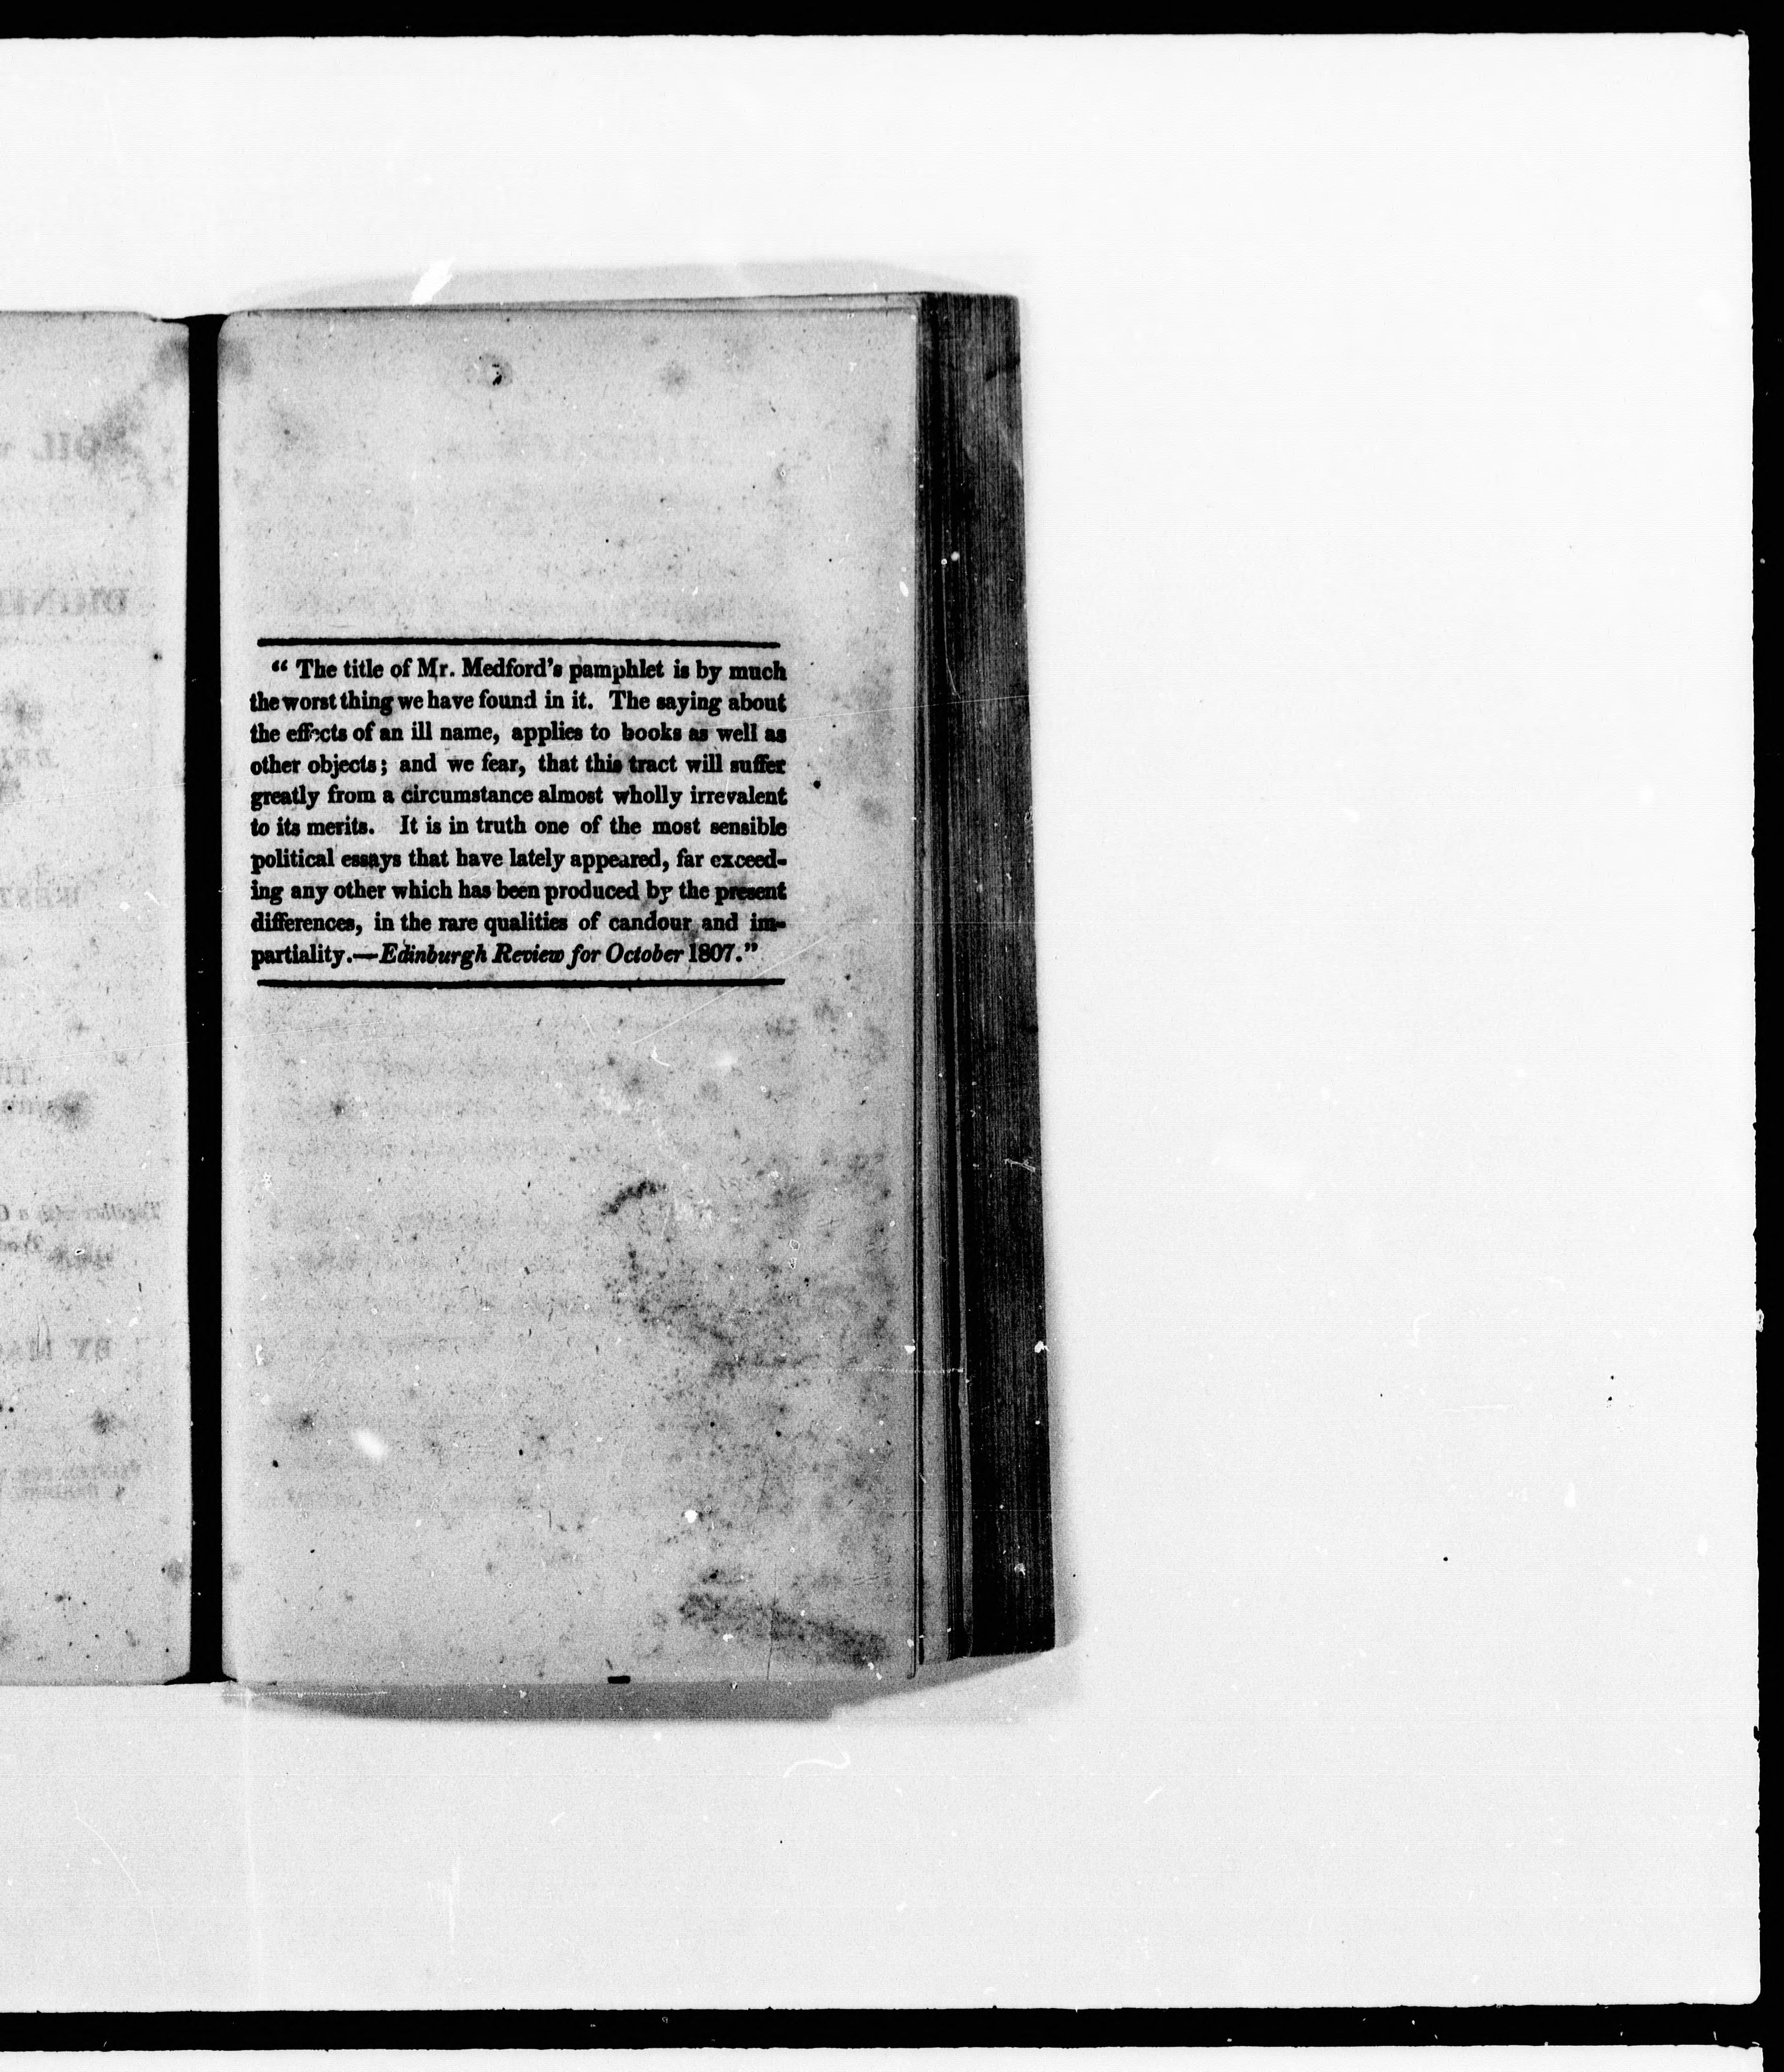 “ The title of Mr. Medford's pamphlet is by much
the worst thing we have found in it. The saying about
the effects of an ill name, applies to books as well as
other objects; and we fear, that this tract will suffer
greatly from a circumstance almost wholly irrevalent
to its merits. It is in truth one of the most sensible
political essays that have lately appeared, far exceed-
ing any other which has been produced by the present
differences, in the rare qualities of candour and im-
partiality.—Edinburgh Review for October 1807.”